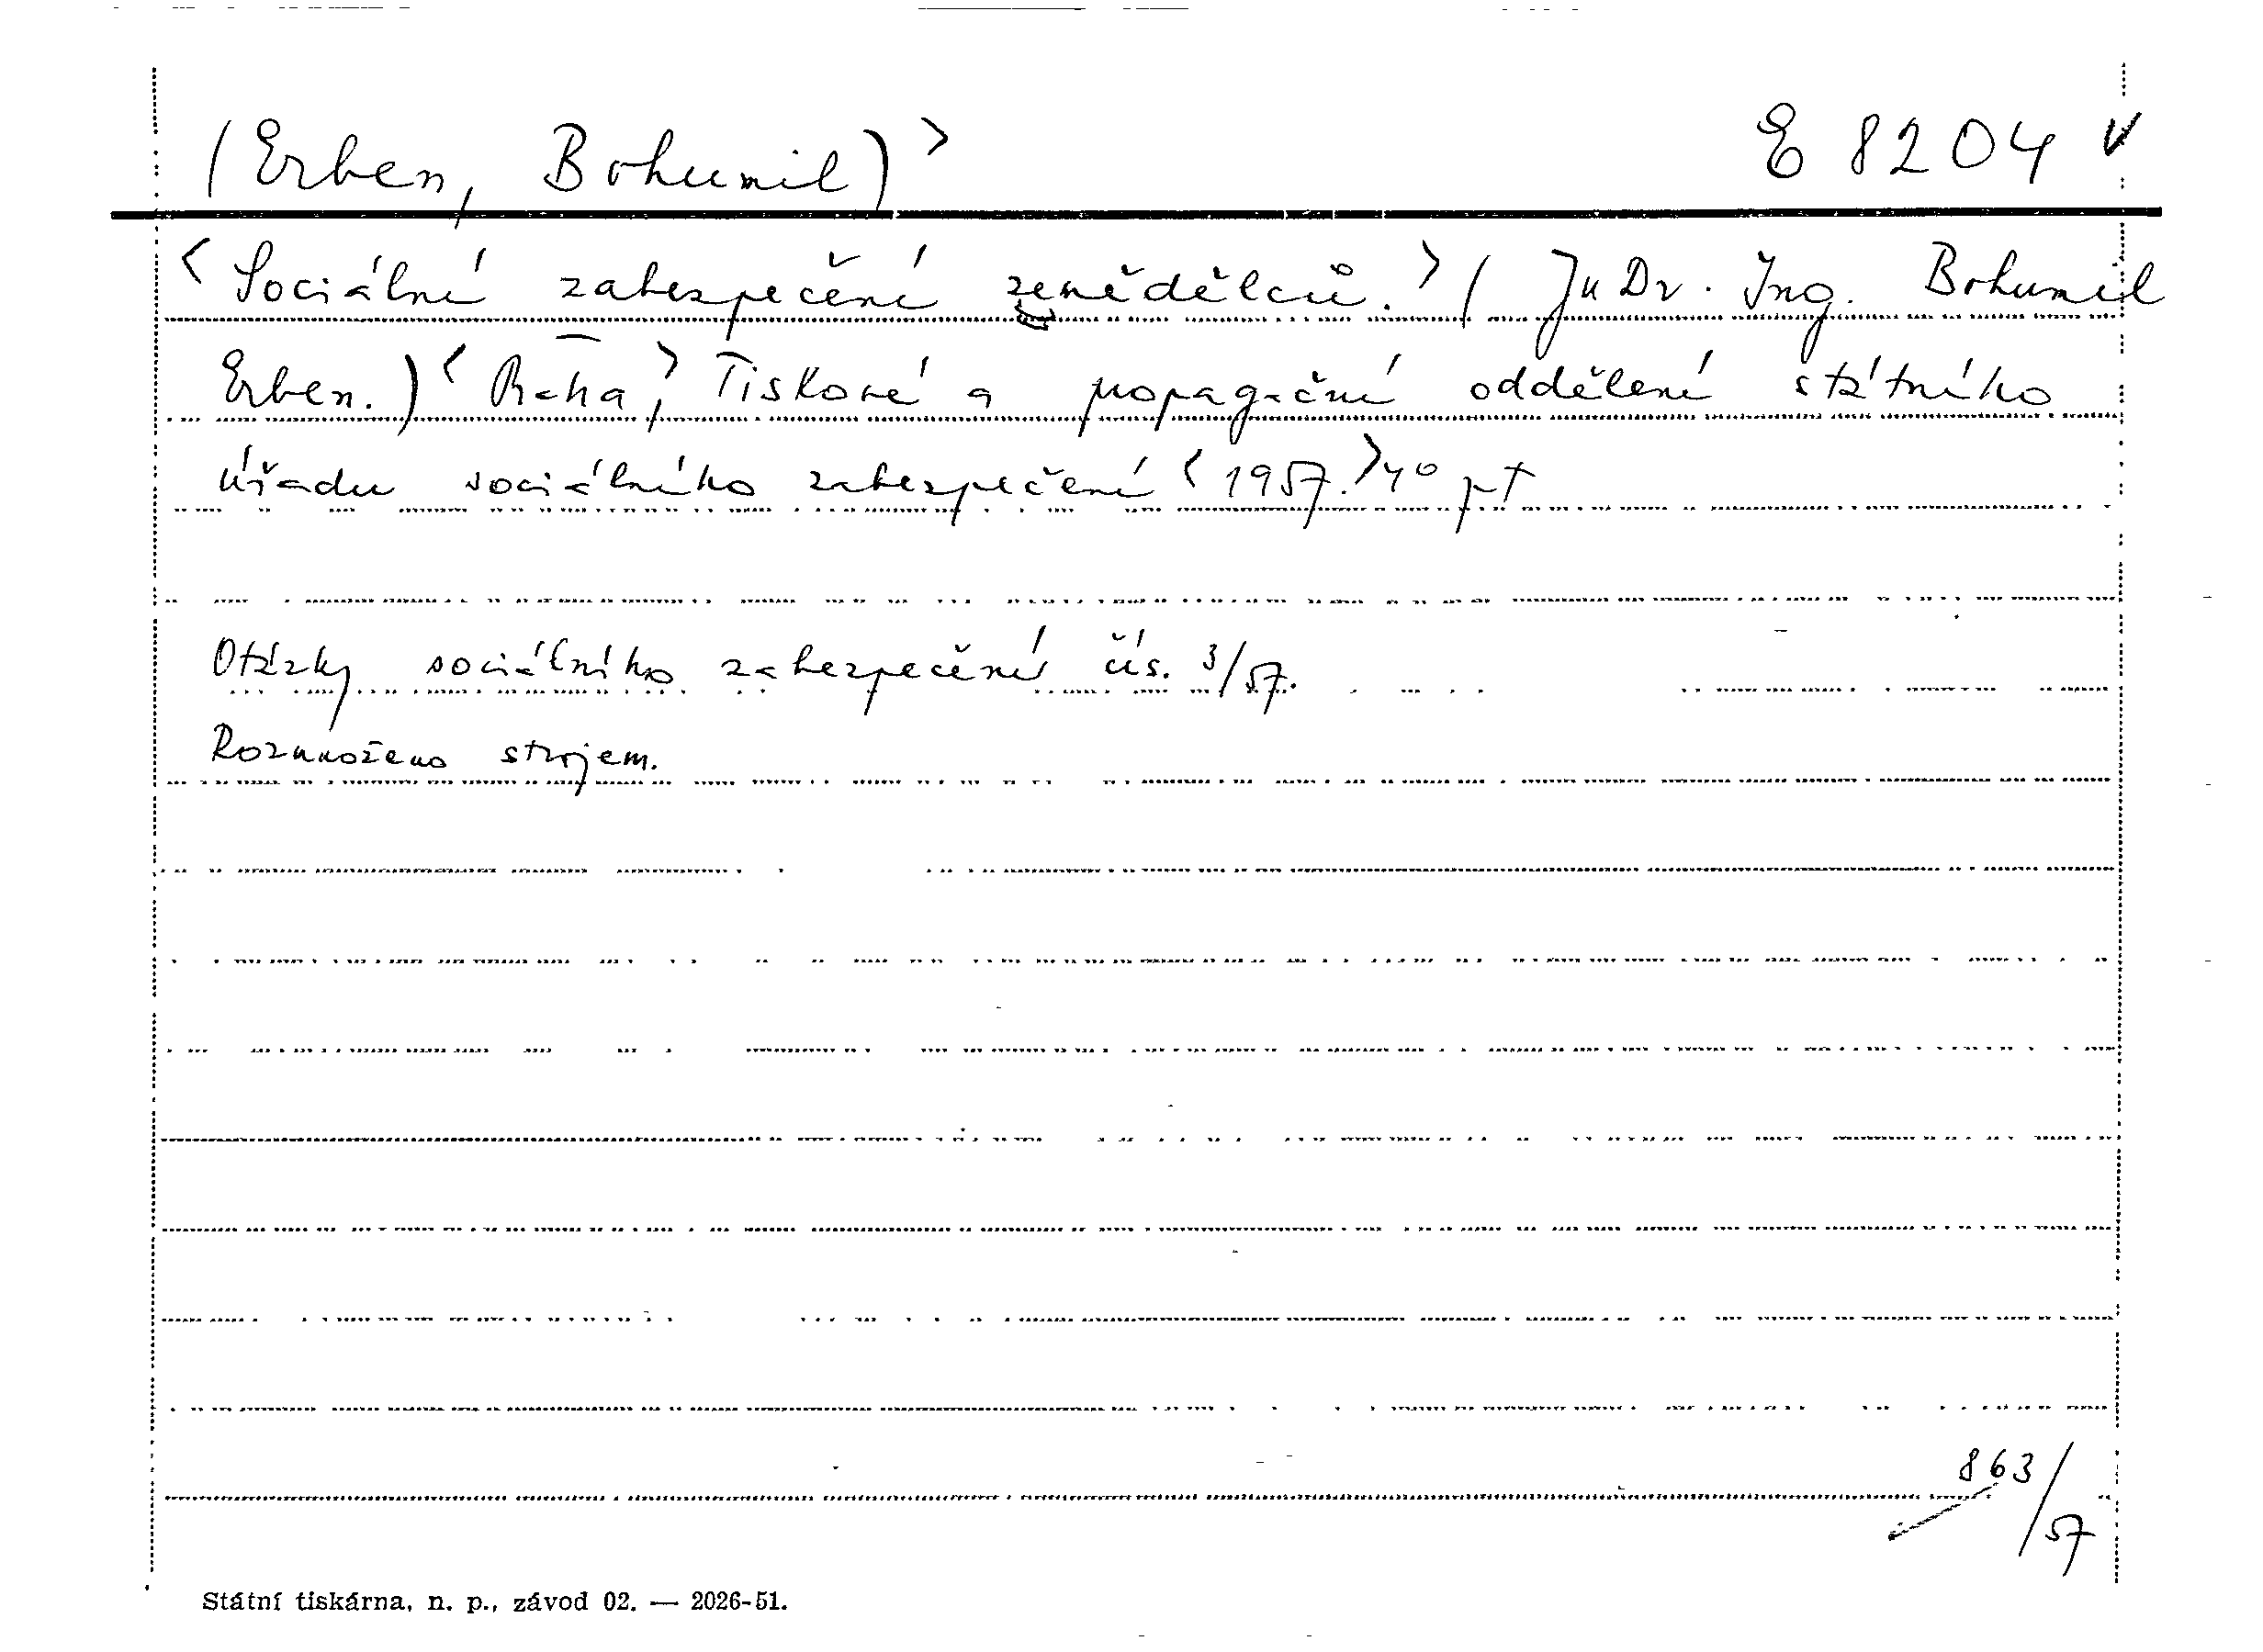 (Erben, Bohumil)> E 8204 v
<Sociální zabezpečení zemědělců.>( JuDr. Ing. Bohumil
Erben.) <Praha,> Tiskové a propagační oddělení státního
úřadu sociálního zabezpečení <1957.> 4°
Otázky sociálního zabezpečení čís. 3/57.
Rozmnoženo strojem.
863/57
Státní tiskárna, n. p., závod 02. — 2026-51.